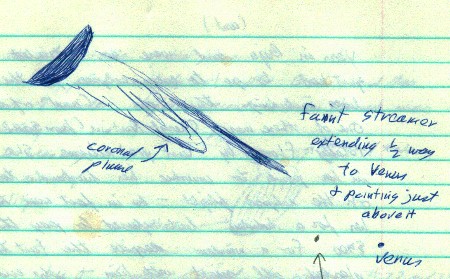 faint streamer
extending 1/2 way
to Venus
+ pointing just
above it
coronal
plume
Venus